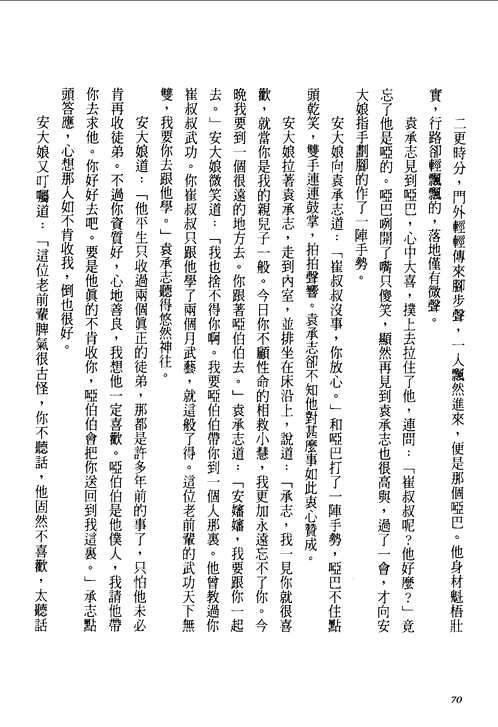 二更時分，門外輕輕傳來腳步聲，一人飄然進來，便是那個啞巴。他身材魁梧壯
實，行路卻輕飄飄的，落地僅有微聲。
袁承志見到啞巴，心中大喜，撲上去拉住了他，連問：「崔叔叔呢？他好麼？」竟
忘了他是啞的。啞巴咧開了嘴只傻笑，顯然再見到袁承志也很高興，過了一會，才向安
大娘指手劃腳的作了一陣手勢。
安大娘向袁承志道：「崔叔叔沒事，你放心。」和啞巴打了一陣手勢，啞巴不住點
頭乾笑，雙手連連鼓掌，拍拍聲響。袁承志卻不知他對甚麼事如此衷心贊成。
安大娘拉著袁承志，走到內室，並排坐在床沿上，說道：「承志，我一見你就很喜
歡，就當你是我的親兒子一般。今日你不顧性命的相救小慧，我更加永遠忘不了你。今
晚我要到一個很遠的地方去。你跟著啞伯伯去。」袁承志道：「安嬸嬸，我要跟你一起
去。」安大娘微笑道：「我也捨不得你啊。我要啞伯伯帶你到一個人那裏。他曾教過你
崔叔叔武功。你崔叔叔只跟他學了兩個月武藝，就這般了得。這位老前輩的武功天下無
雙，我要你去跟他學。」袁承志聽得悠然神往。
安大娘道：「他平生只收過兩個眞正的徒弟，那都是許多年前的事了，只怕他未必
肯再收徒弟。不過你資質好，心地善良，我想他一定喜歡。啞伯伯是他僕人，我請他帶
你去求他。你好好去吧。要是他眞的不肯收你，啞伯伯會把你送回到我這裏。」承志點
頭答應，心想那人如不肯收我，倒也很好。
安大娘又叮囑道：「這位老前輩脾氣很古怪，你不聽話，他固然不喜歡，太聽話
70